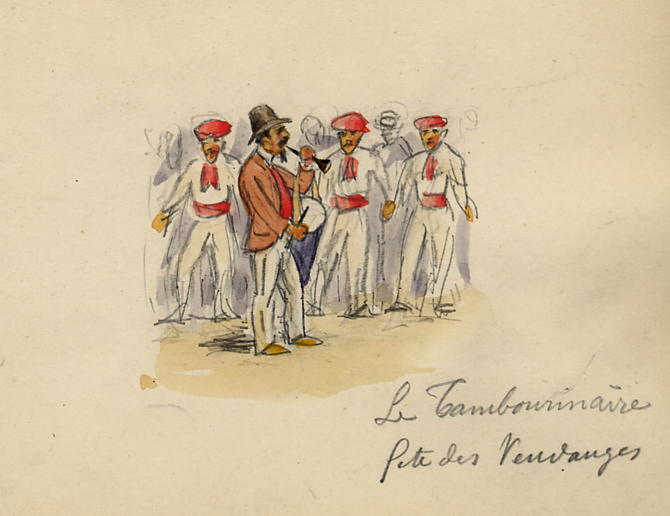 Le Tambourinaire
fete des Vendanges